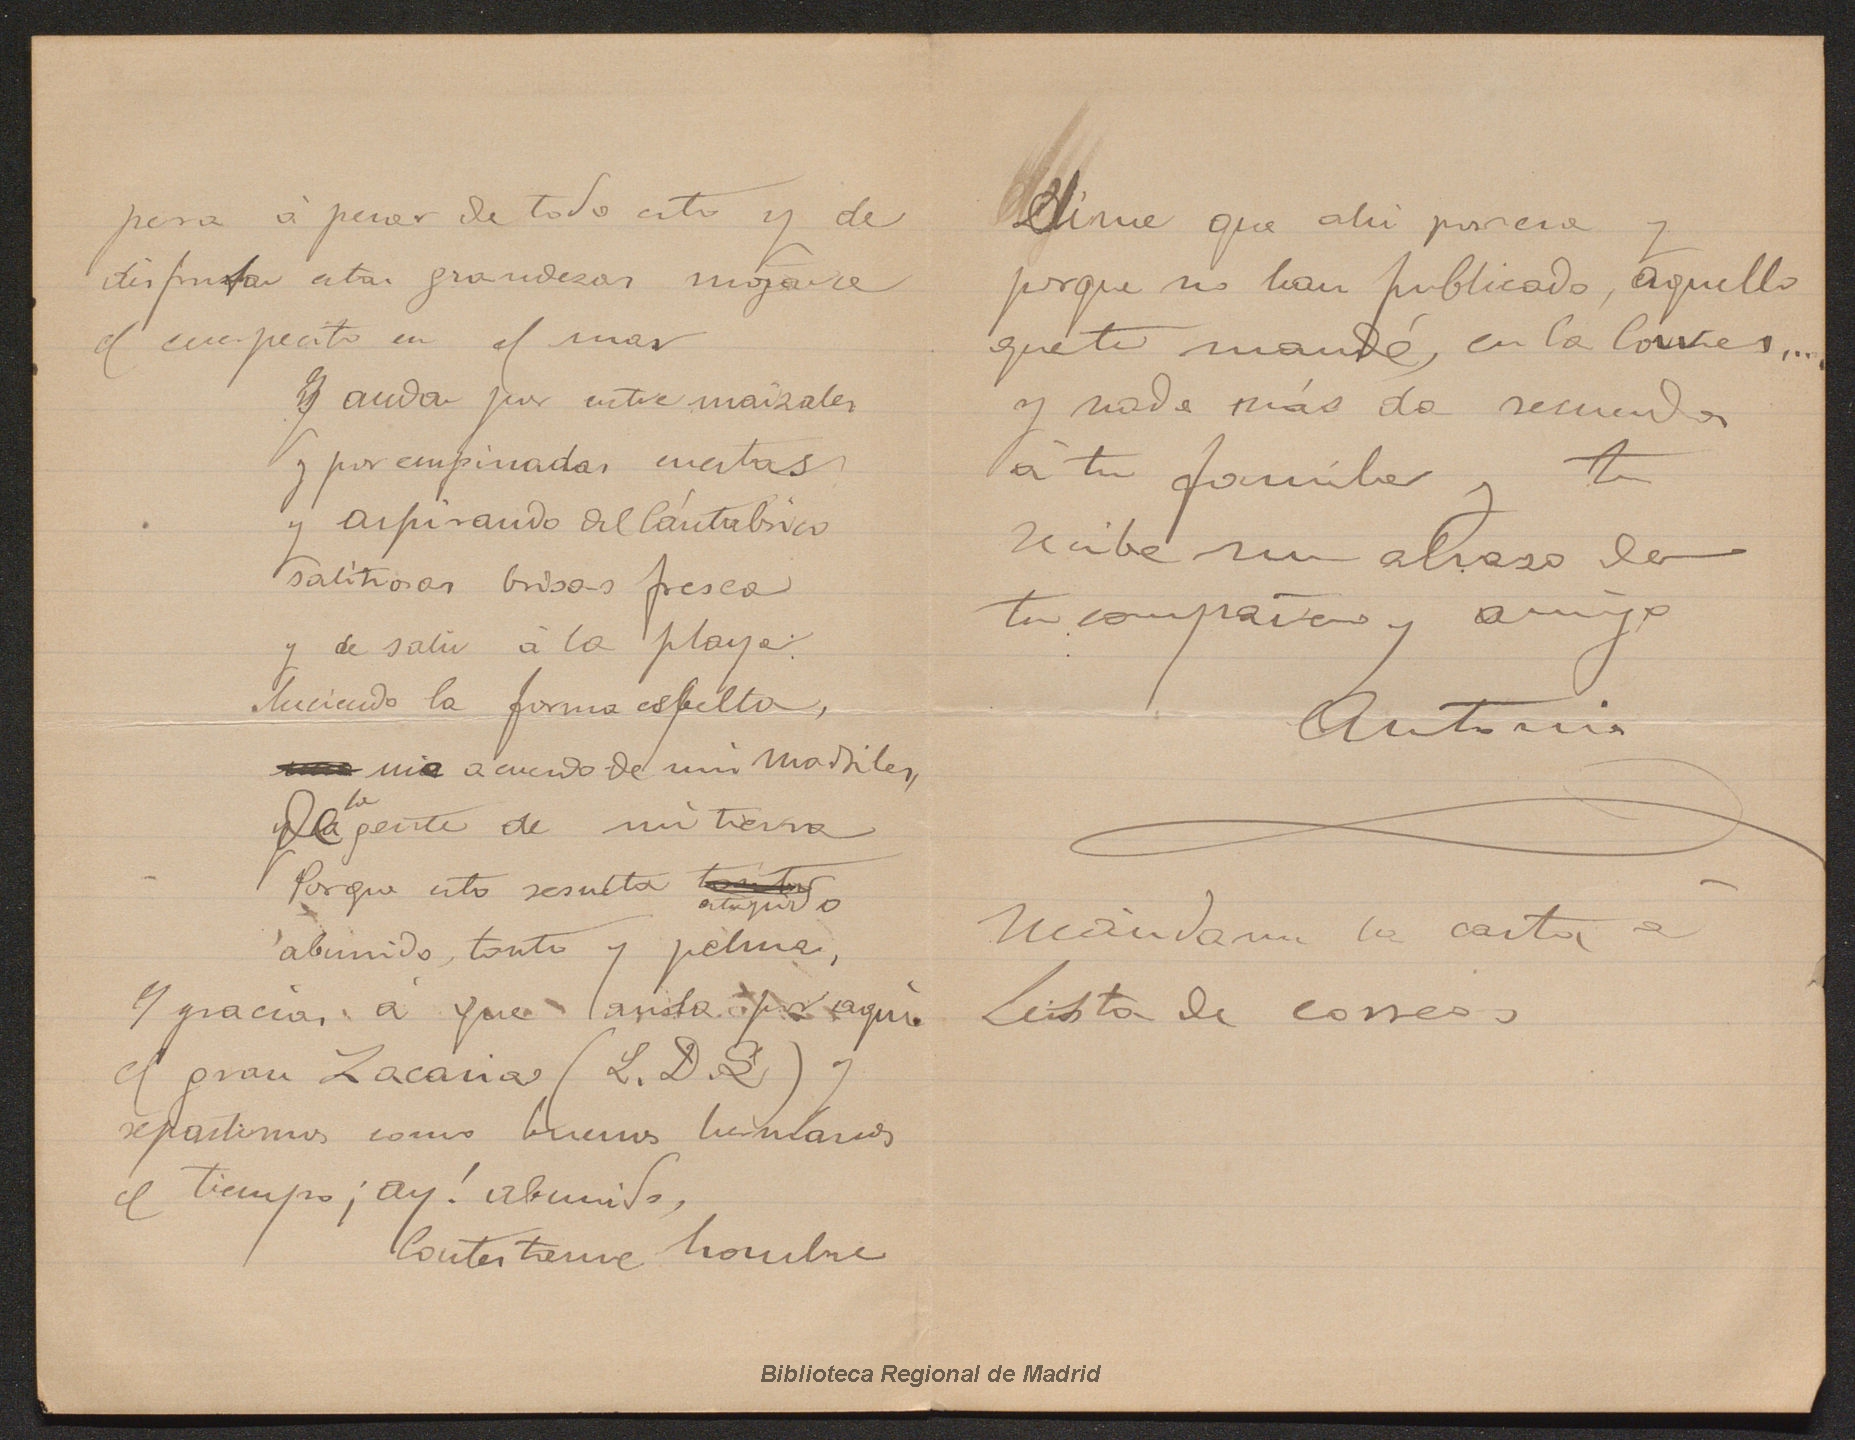 pero á pesar de todo esto y de
disfrutar estas grandezas mojarse
el cuerpecito en el mar
Y andar por entre maizales
y por empinadas cuestas
y aspirando del Cántabrico
salitrosas brisas fresca
y de salir á la playa
luciendo la forma esbelta,
me acuerdo de mis Madriles,
De la gente de mi tierra
Porque esto resulta
estupido
aburrido, tonto y pelma,
Y gracias á que anda por aquí
el gran Zacarias (L. D. L) y
repartimos como buenos hermanos
el tiempo ¡ay! aburrido,
Contestame hombre
Dime que ahi pasa y
porque no han publicado, aquello
que te mandé, en la Corres....
y nada más da recuerdos
á tu familia y tu
recibe un abrazo de
tu compañero y amigo
Antonio
Mándame la carta a
Lista de correos
Biblioteca Regional de Madrid